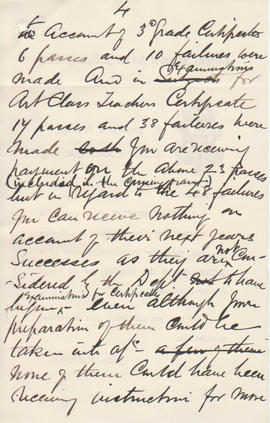 4
the Account of 3d Grade Certificates
6 passes and 10 failures were
made And in Examinations for
Art Class Teachers Certificate
17 passes and 38 failures were
made You are receiving
payment on the above 23 passes
(included in the
but in regard to the 48 failures
you can receive nothing on
account of their next years
Successes as they are not Con-
-sidered by the Dept to have
Examinations for Certificates
even although your
preparation of them could be
taken into a/c a few of them
None of them could have been
receiving instruction for more